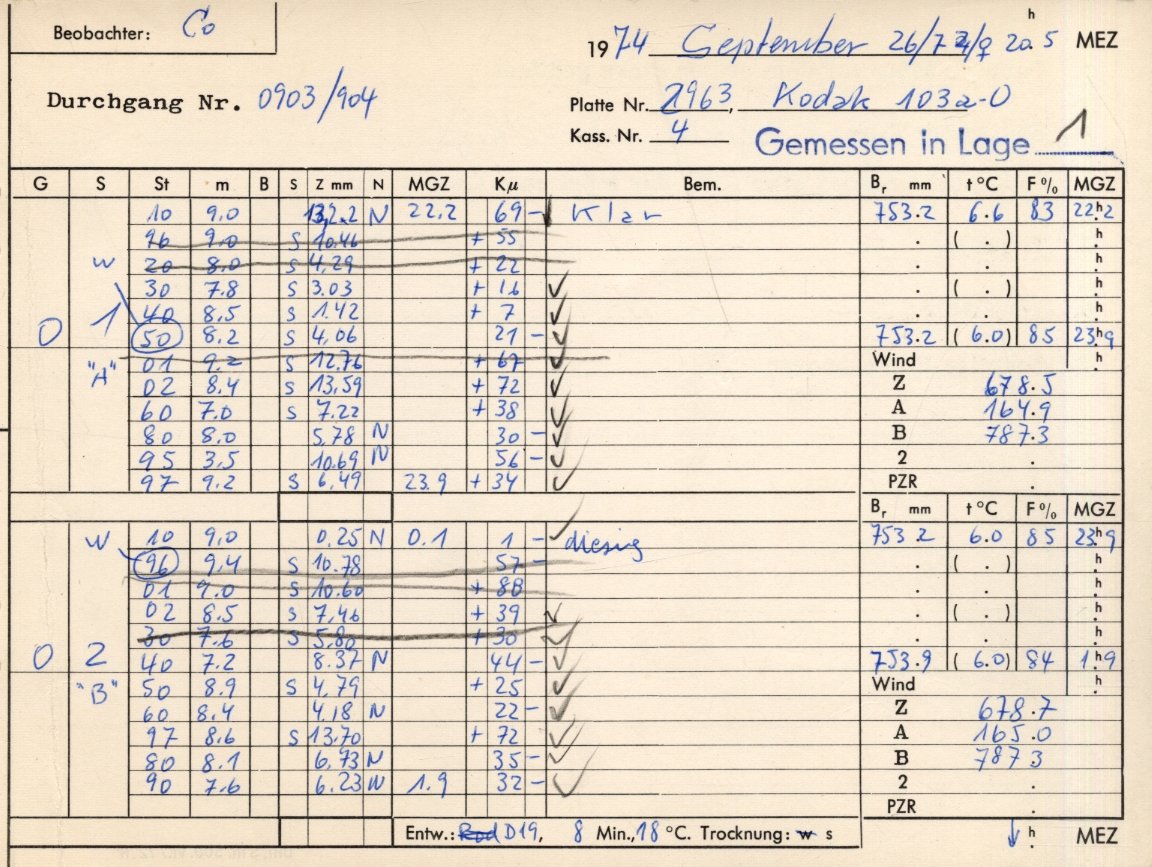 Beobachter: Co
h
1974 September 26/7 20.5 MEZ
Durchgang Nr. 0903/904
Platte Nr. 2963, Kodak 103a-O
Kass. Nr. 4
Gemessen in Lage 1
G S St m B S Z mm N MGZ Kμ Bem. Br mm t °C F % MGZ
10 9.0 N 22.2 69 - Klar 753.2 6.6 83 22h2
96 9.0 S 10.46 + 55 . ( . ) h
W 20 8.0 S 4,29 + 22 . . h
30 7.8 S 3.03 + 16 . ( . ) h
40 8,5 S 1.42 + 7 . . h
0 1 50 8.2 S 4,06 21 - 753.2 ( 6.0) 85 23h9
01 9.2 S 12.76 + 67 Wind h
"A" 02 8,4 S 13.59 + 72 Z 678.5
60 7.0 S 7.22 + 38 A 164.9
80 8.0 5,78 N 30 - B 787.3
95 3,5 10.69 N 56 - 2 .
97 9.2 S 6,49 23.9 + 34 PZR .
Br mm t °C F % MGZ
W 10 9,0 0.25 N 0.1 1 - diesig 753 2 6.0 85 23h9
96 9,4 S 10.78 57 - . ( . ) h
01 9.0 S 10.60 + . . h
02 8.5 S 7,46 + 39 . ( . ) h
30 7.6 S 5,80 + 30 . . h
0 2 40 7.2 8.37 N 44 - 753.9 ( 6.0) 84 1h9
"B" 50 8.9 S 4,79 + 25 Wind h
60 8.4 4.18 N 22 - Z 678.7
97 8.6 S 13.70 + 72 A 165.0
80 8.1 6.73 N 35 - B 787 3
90 7.6 6.23 N 1.9 32 - 2 .
PZR .
Entw.: D19, 8 Min., 18 °C. Trocknung: w s h MEZ